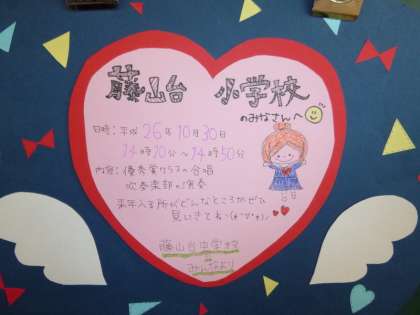 藤山台 小学校
のみなさんへ
日時：平成 26年10月30日
14時10分～14時50分
内容：優秀賞クラスの合唱
吹奏楽部の演奏
来年入る所がどんなところかぜひ
見にきてね
藤山台中学校
みんなより